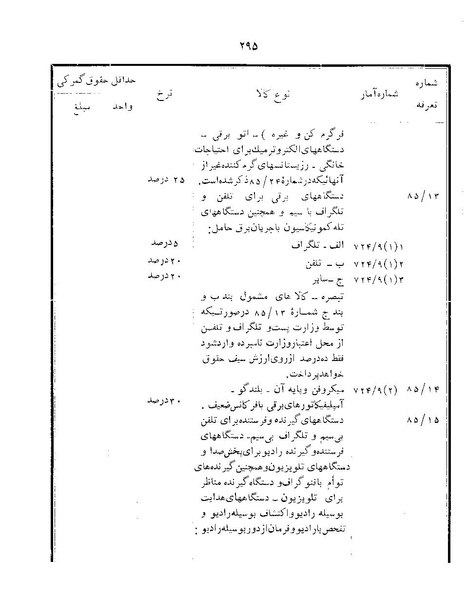 ۲۹۵
شماره تعرفه شماره آمار نوع کالا نرخ حداقل حقوق گمرکی واحد مبلغ
فرگرم کن و غیره ) ــ اتو برقی ــ
دستگاههای الکتروترمیک برای احتیاجات
خانگی ــ رزیستانسهای گرم کننده غیر از
آنهائیکه در شمارهٔ ۸۵/۲۴ ذکر شده است. ۲۵ درصد
۸۵/۱۳ دستگاههای برقی برای تلفن و
تلگراف با سیم و همچنین دستگاههای
تله کمونیکاسیون با جریان برق حامل:
۷۲۴/۹(۱)۱ الف ــ تلگراف ۵ درصد
۷۲۴/۹(۱)۲ ب ــ تلفن ۲۰ درصد
۷۲۴/۹(۱)۳ ج ــ سایر ۲۰ درصد
تبصره ــ کالاهای مشمول بند ب و
بند ج شمارهٔ ۸۵/۱۳ در صورتیکه
توسط وزارت پست و تلگراف و تلفن
از محل اعتبار وزارت نامبرده وارد شود
فقط ده درصد از روی ارزش سیف حقوق
خواهد پرداخت.
۸۵/۱۴ ۷۲۴/۹(۲) میکروفن و پایه آن ــ بلندگو ــ
آمپلیفیکاتورهای برقی با فرکانس ضعیف. ۳۰ درصد
۸۵/۱۵ دستگاههای گیرنده و فرستنده برای تلفن
بی سیم و تلگراف بی سیم ــ دستگاههای
فرستنده و گیرنده رادیو برای پخش صدا و
دستگاههای تلویزیون و همچنین گیرنده های
توأم با فنوگراف و دستگاه گیرنده متناظر
برای تلویزیون ــ دستگاههای هدایت
بوسیله رادیو و اکتشاف بوسیله رادیو و
تفحص با رادیو و فرمان از دور بوسیله رادیو :